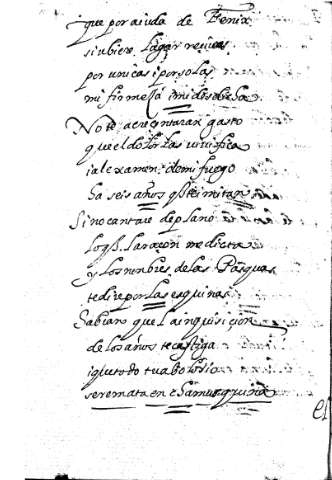 que por aiuda de Fenix
si ubiere lugar reuiuas
por unicas i por solas
mi firmeça i mi desdicha
No te acrecentaran gasto
que el dolor las
i al examen de mi fuego
ha seis años q̃ te imitan
Si no cantare de plano
lo q̃ la raçon me dicta
y los nombres de las Pasquas
te dire por las esquinas
Sabran que la inquisicion
de los años te castiga
i que todo tu abolorio
se remata en
el